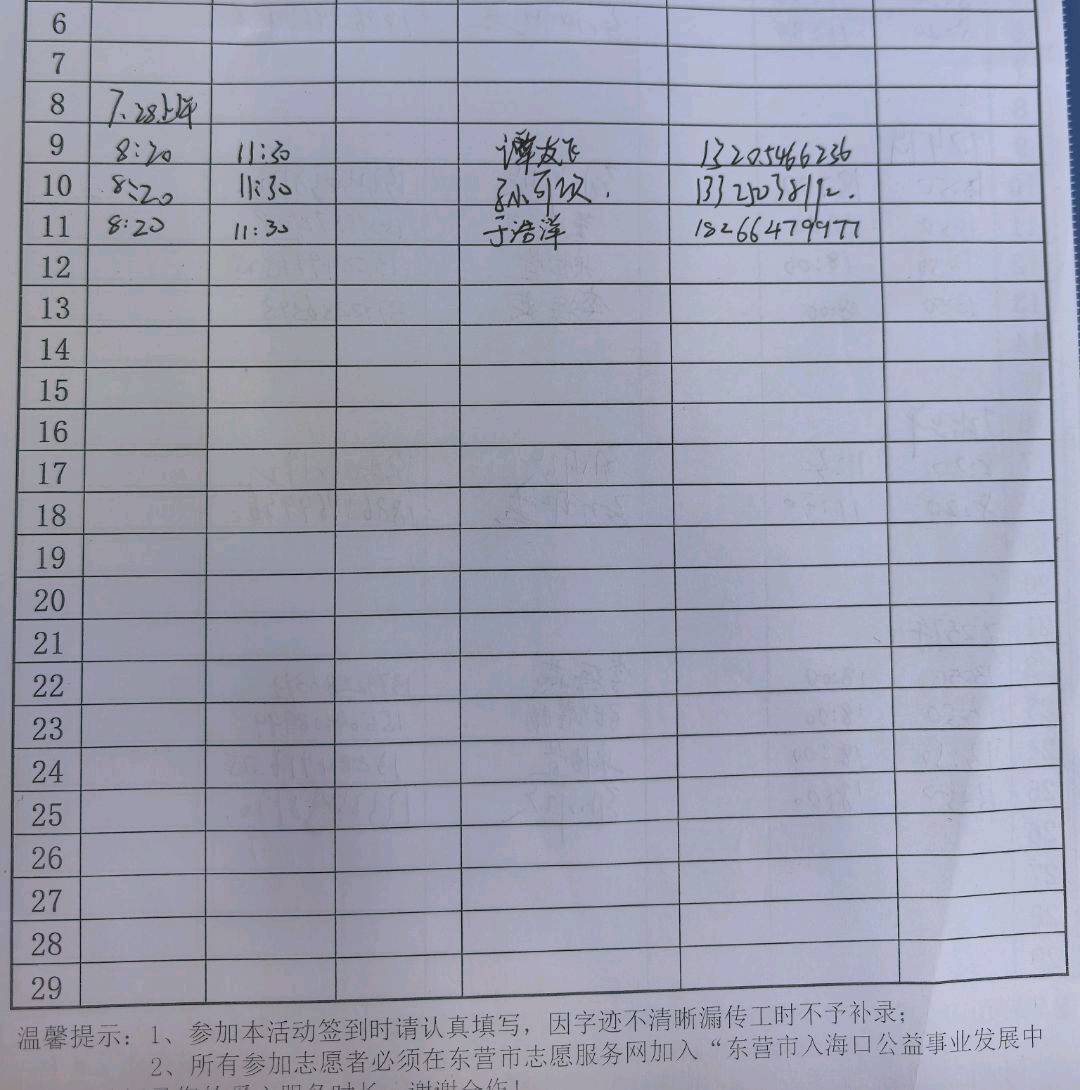 6
7
8 7.28上午
9 8:20 11:30 谭友飞 13205466236
10 8:20 11:30 孙可欣. 13325038192.
11 8:20 11:30 于浩洋 18266479977
12
13
14
15
16
17
18
19
20
21
22
23
24
25
26
27
28
29
温馨提示: 1、参加本活动签到时请认真填写,因字迹不清晰漏传工时不予补录;
2、所有参加志愿者必须在东营市志愿服务网加入“东营市入海口公益事业发展中